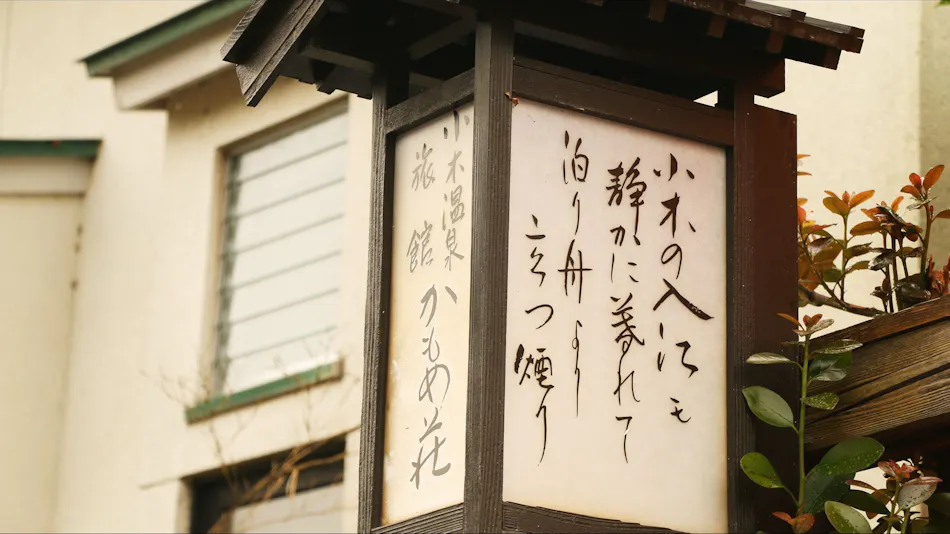 小木の入江も
静かに暮れて
泊り舟より
立つ煙り
小木温泉
旅館
かもめ荘